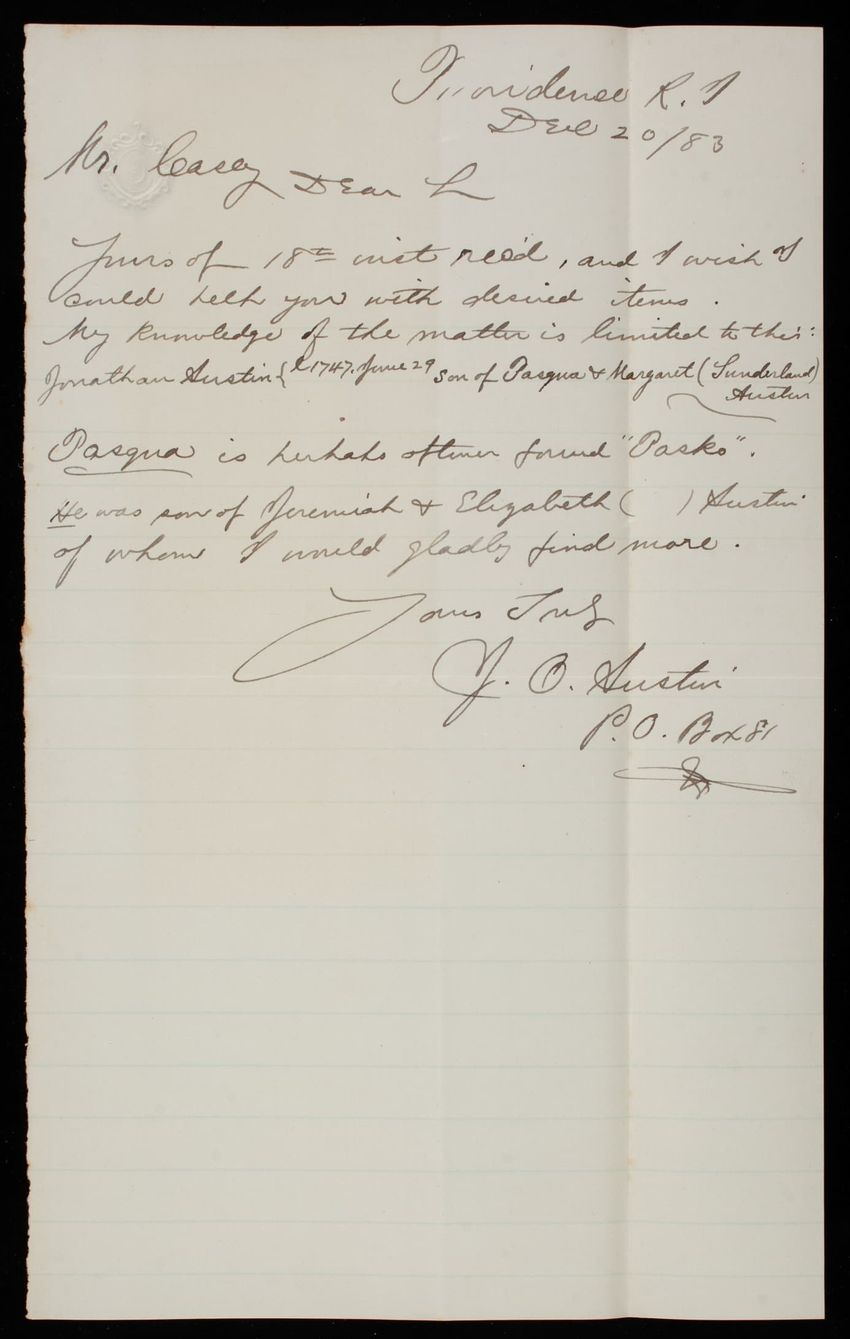 Providence R. I
Dec 20/83
Mr. Casey Dear Sr
Yours of 18th inst rec'd, and I wish I
could help you with desired items.
My knowledge of the matter is limited to this:
Jonathan Austin { b. 1747, June 29 son of Pasqua & Margaret (Sunderland)
Austin
Pasqua is perhaps oftener found "Pasko".
He was son of Jeremiah & Elizabeth ( ) Austin
of whom I would gladly find more.
Yours Truly
J. O. Austin
P.O. Box 81